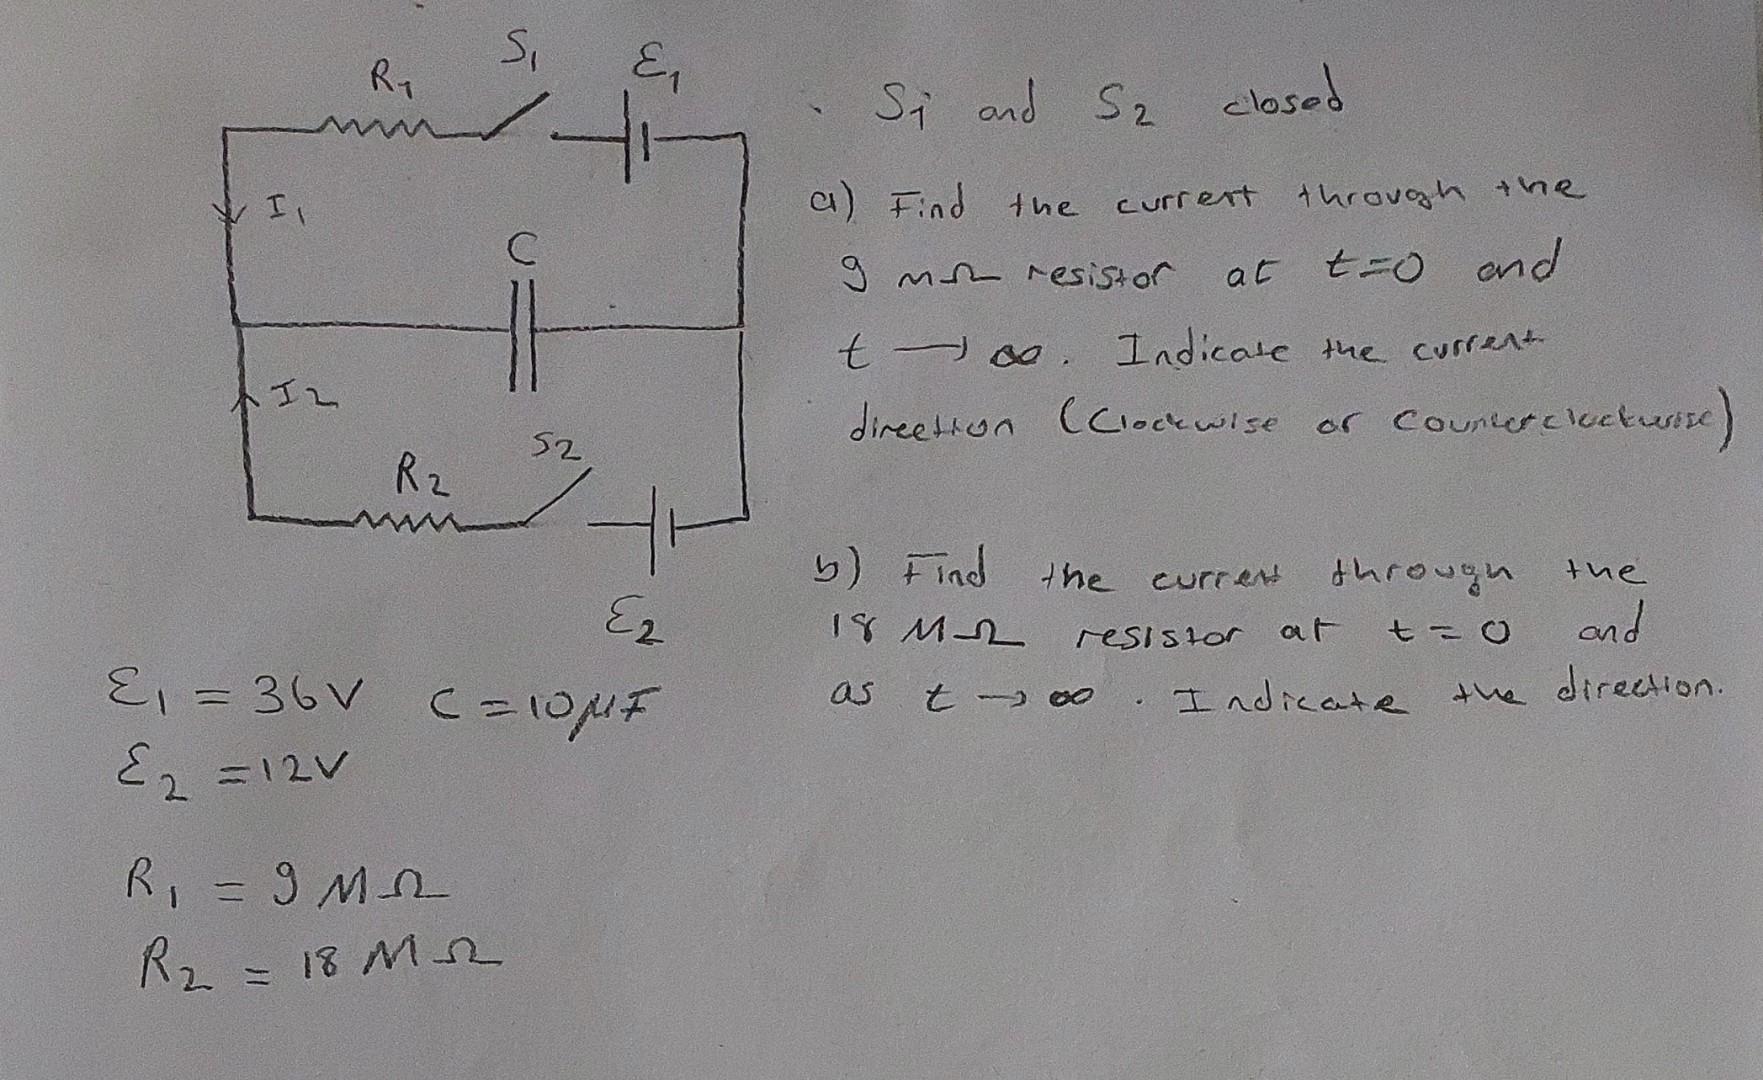 R₁
S₁
ε₁
I₁
C
I2
S2
R₂
ε₂
ε₁ = 36V C = 10μF
ε₂ = 12V
R₁ = 9 MΩ
R₂ = 18 MΩ
. S₁ and S₂ closed
a) Find the current through the
9 mΩ resistor at t=0 and
t → ∞. Indicate the current
direction (Clockwise or Counterclockwise)
b) Find the current through the
18 MΩ resistor at t = 0 and
as t → ∞. Indicate the direction.